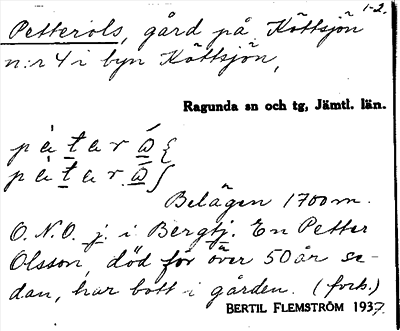 1-2.
Petterols, gård på Köttsjön
n:r 4 i byn Köttsjön,
Ragunda sn och tg, Jämtl. län.
Belägen 1700 m.
O.N.O. j i Bergtj. En Petter
Olsson, död för över 50 år se-
dan, har bott i gården. (fork.)
BERTIL FLEMSTRÖM 1937.